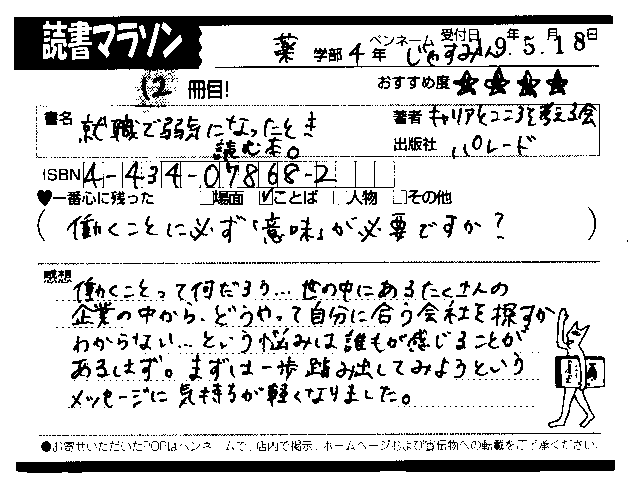 読書マラソン
薬 学部 4年 ペンネーム じゃすみん 受付日 19年 5月 18日
12 冊目! おすすめ度 ★★★★
書名 就職で弱気になったとき読む本。
著者 キャリアとココロを考える会
出版社 パレード
ISBN 4-434-07868-2
♥一番心に残った □場面 ☑ことば □人物 □その他
( 働くことに必ず「意味」が必要ですか? )
感想
働くことって何だろう…世の中にあるたくさんの
企業の中から、どうやって自分に合う会社を探すか
わからない…という悩みは誰もが感じることが
あるはず。まずは一歩踏み出してみようという
メッセージに気持ちが軽くなりました。
●お寄せいただいたPOPはペンネームで、店内で掲示、ホームページおよび宣伝物への転載をご了承ください。